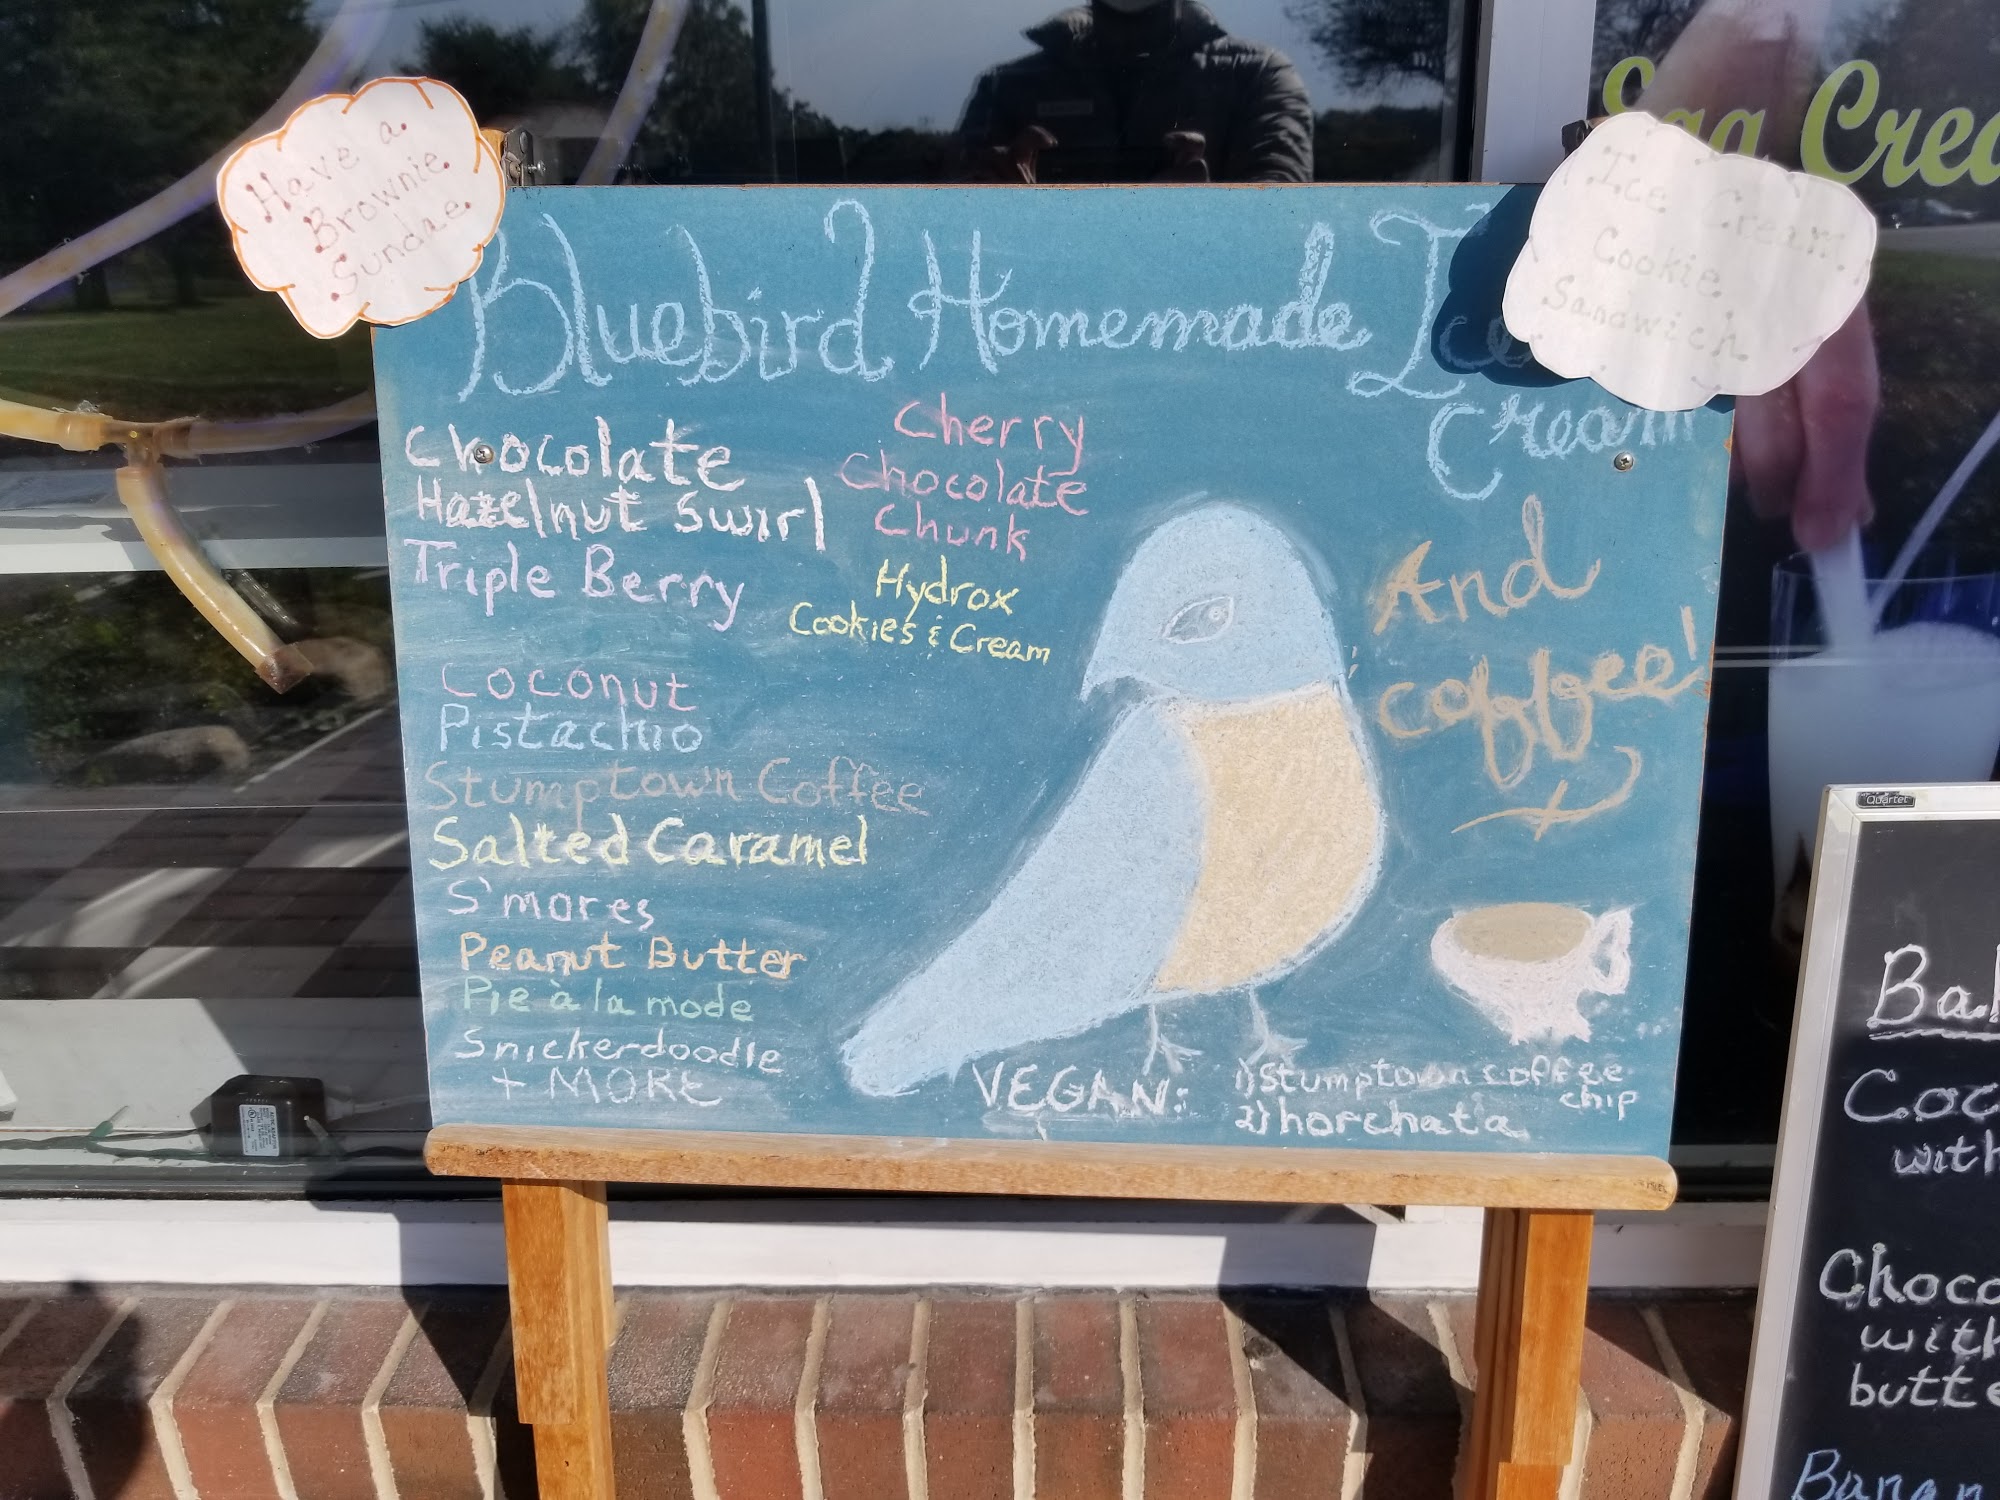 Have a
Brownie
Sundae
Ice Cream
Cookie
Sandwich
Egg Crea
Bluebird Homemade Ice
Cream
And
coffee!
Chocolate
Hazelnut Swirl
Triple Berry
Coconut
Pistachio
Stumptown Coffee
Salted Caramel
S'mores
Peanut Butter
Pie à la mode
Snickerdoodle
+ MORE
Cherry
Chocolate
Chunk
Hydrox
Cookies & Cream
VEGAN:
1) Stumptown coffee
chip
2) horchata
Quartet
Ba
Coc
with
Choco
with
butte
Banan